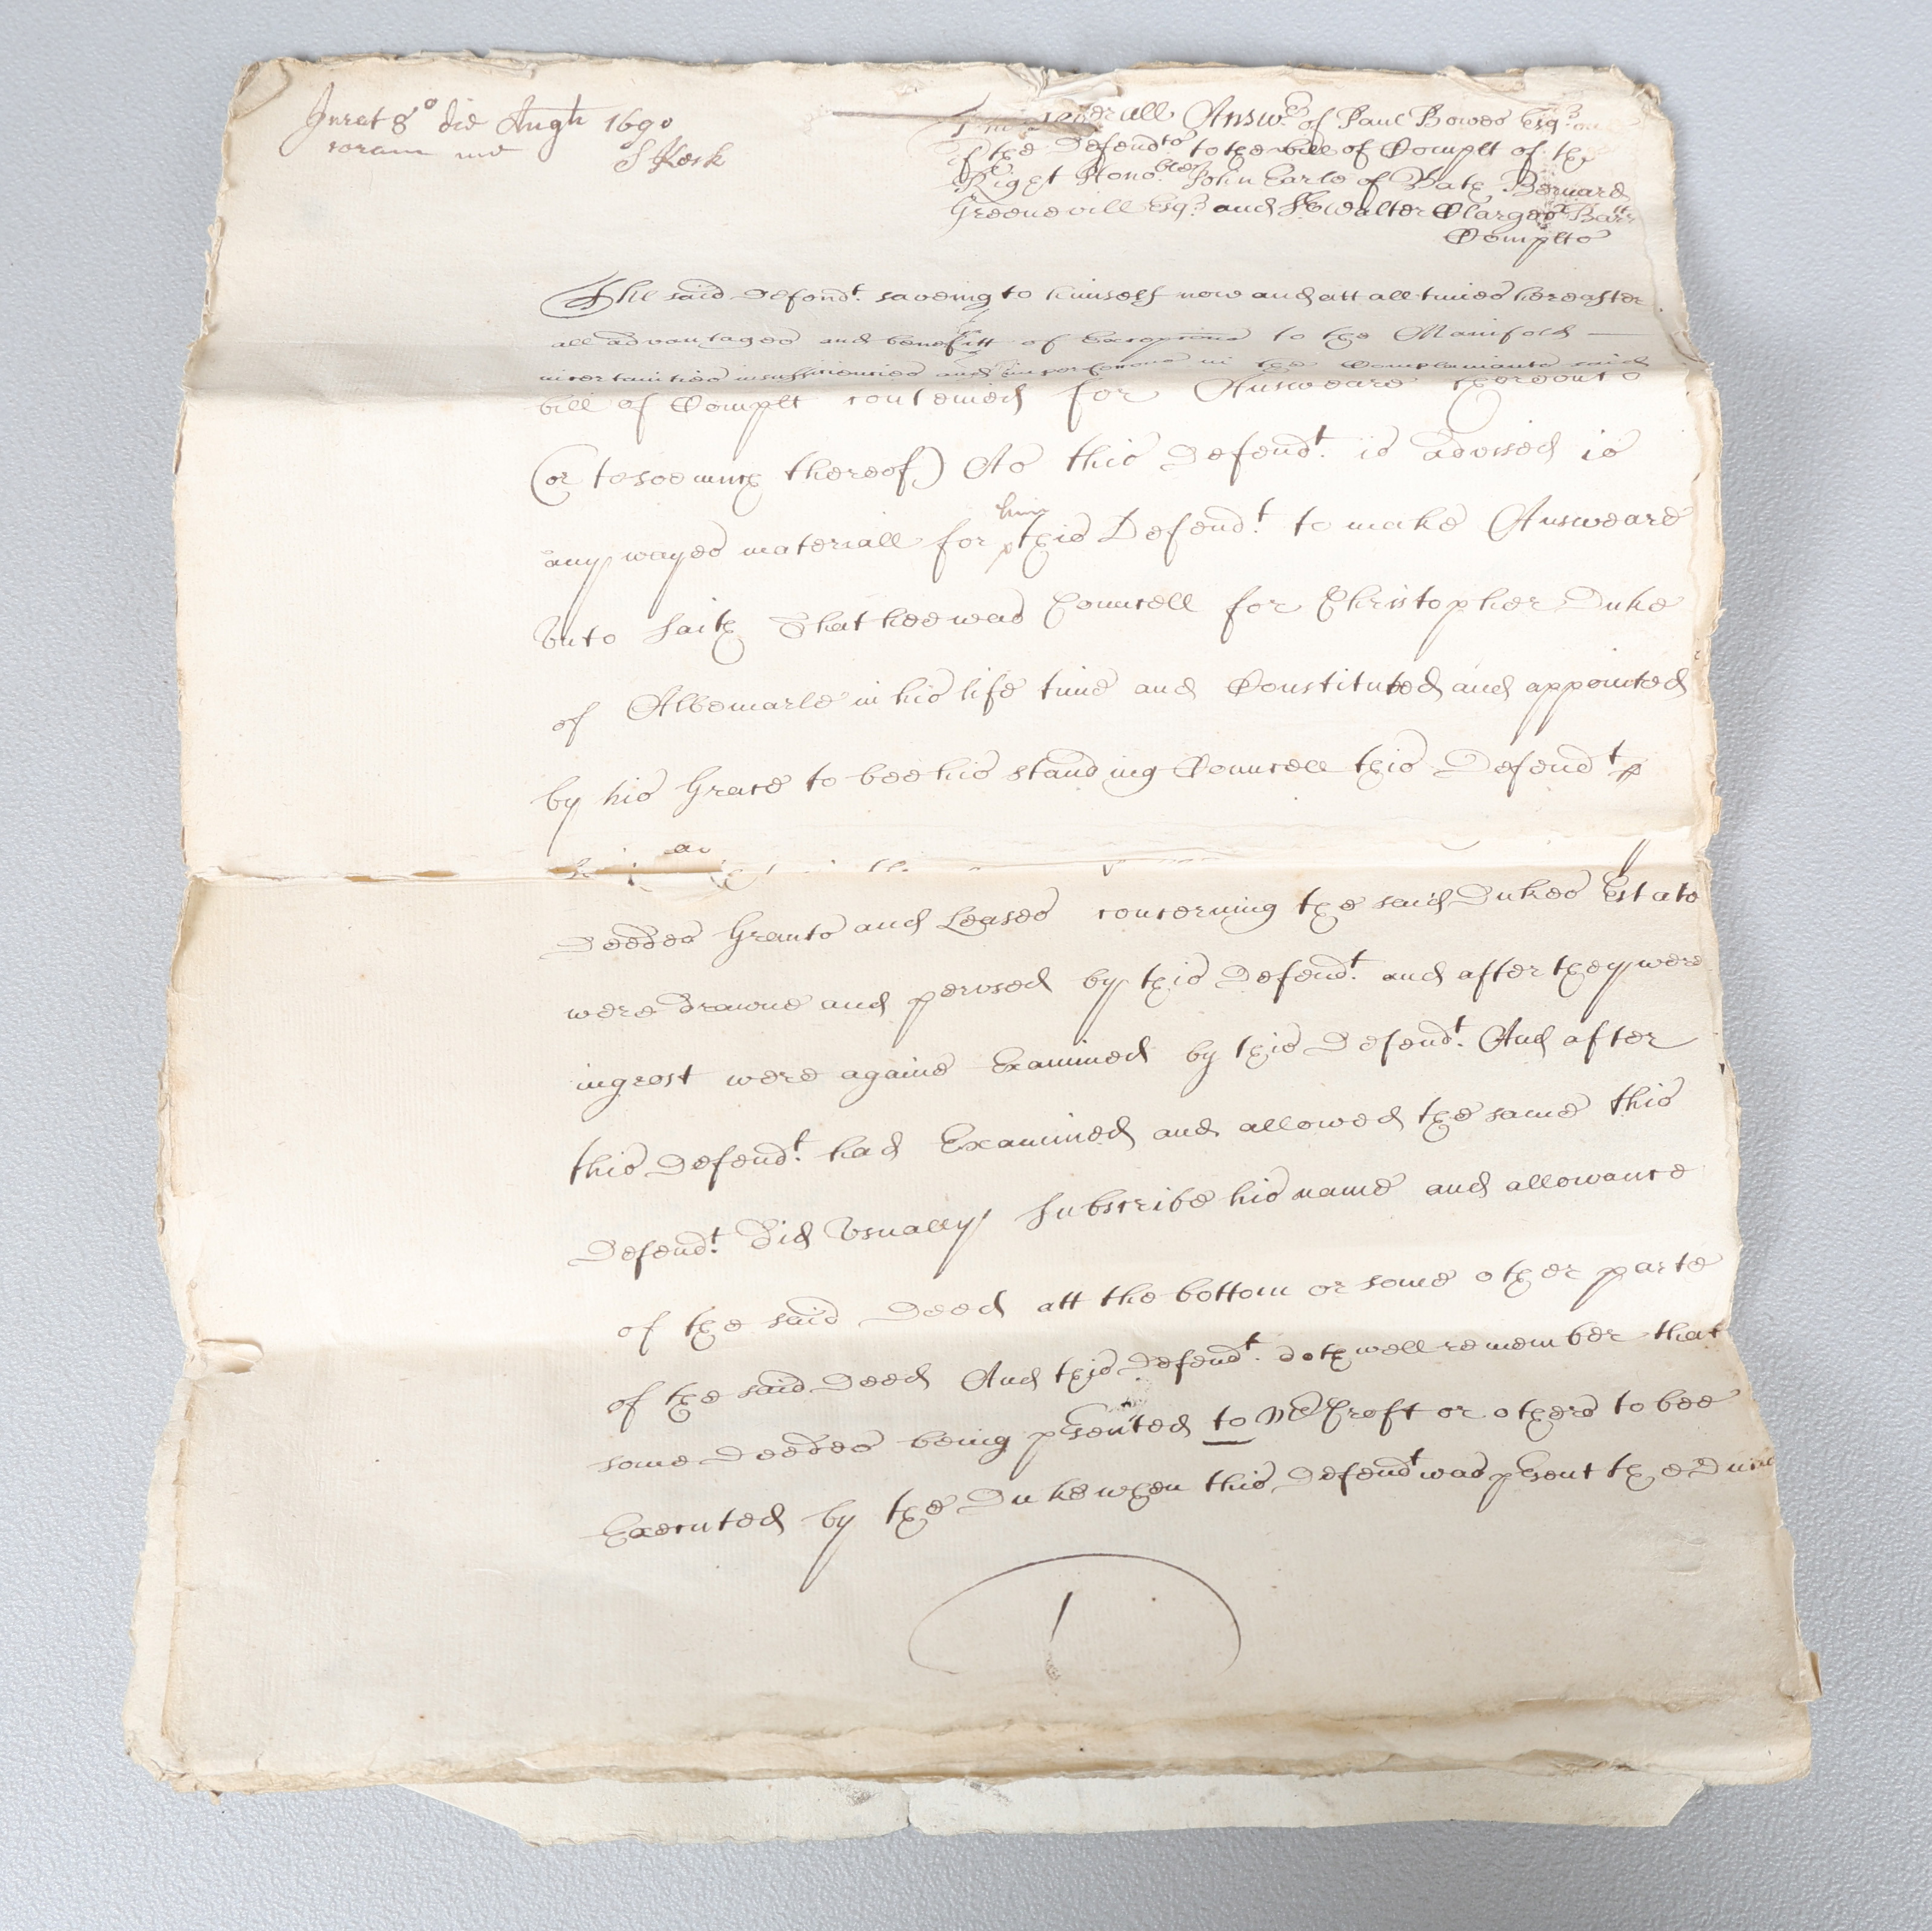 Jurat 8o die Augti 1690
coram me
S Keck
The severall Answer of Paul Bowes Esqr one
of the Defendts to the bill of Complt of the
Right Honoble John Earle of Bath Bernard
Greenevill Esqr and Sr Walter Clarges Barrt
Complts
The said Defendt. saveing to himself now and att all times hereafter
all advantages and benefitt of Excepcions to the Manifold
incertainties insufficiencies and imperfeccons in the Complainants said
bill of Complt conteined for Answeare thereunto
(or to soe much thereof) As this Defendt. is advised is
any wayes materiall for him this Defendt. to make Answeare
unto Saith That hee was Councell for Christopher Duke
of Albemarle in his life time and Constituted and appointed
by his Grace to bee his standing Councell this Defendt
Deedes Grants and Leases concerning the said Dukes Estate
were drawne and perused by this Defendt. and after they were
ingrost were againe Examined by this Defendt. And after
this Defendt. had Examined and allowed the same this
Defendt. did Usually Subscribe his name and allowance
of the said Deed att the bottom or some other parte
of the said Deed And this Defendt. doth well remember that
some Deedes being psented to Mr Croft or others to bee
Executed by the Duke when this Defendt was psent the Duke
1